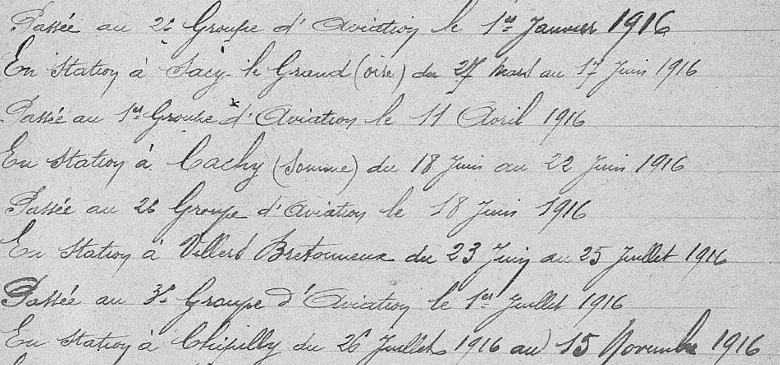 Passée au 2e Groupe d'Aviation le 1er Janvier 1916
En Station à Sacy-le Grand (oise) du 27 Mars au 17 Juin 1916
Passée au 1er Groupe d'Aviation le 11 Avril 1916
En Station à Cachy (Somme) du 18 Juin au 22 Juin 1916
Passée au 2e Groupe d'Aviation le 18 Juin 1916
En Station à Villers Bretonneux du 23 Juin au 25 Juillet 1916
Passée au 3e Groupe d'Aviation le 1er Juillet 1916
En Station à Chipilly du 26 Juillet 1916 au 15 Novembre 1916